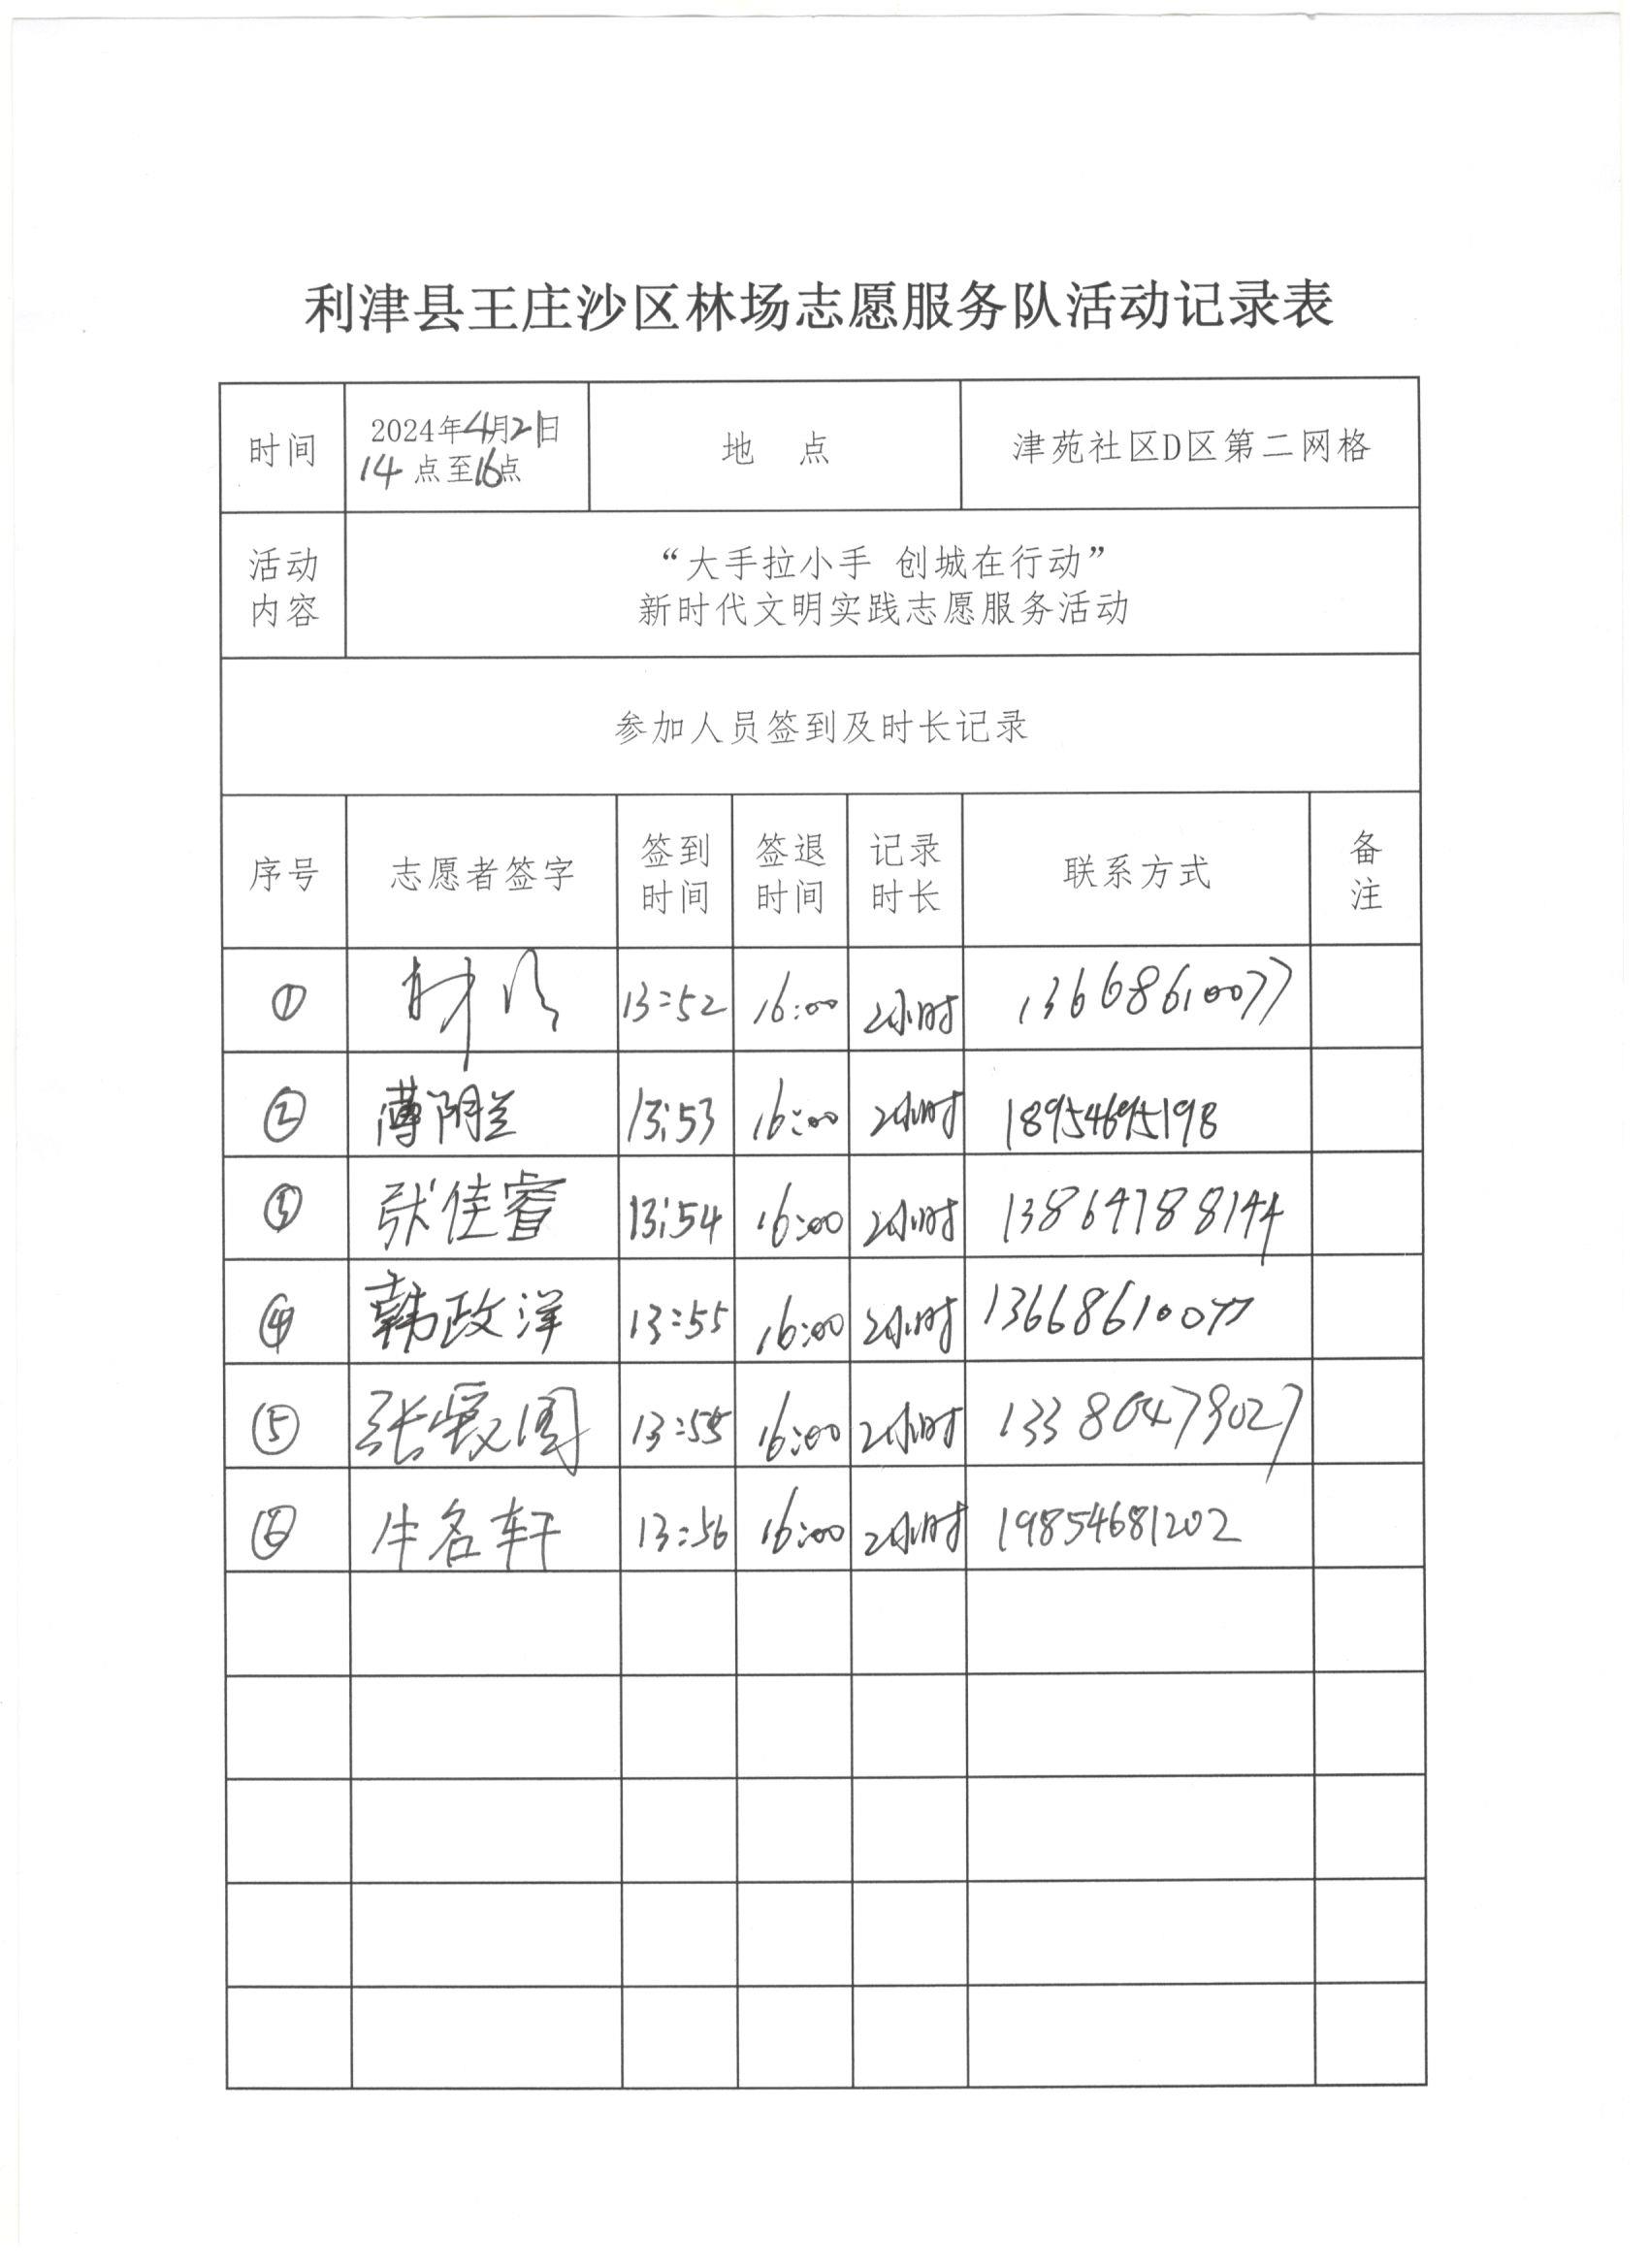 利津县王庄沙区林场志愿服务队活动记录表
时间
2024年4月21日
14点至16点
地 点
津苑社区D区第二网格
活动
内容
“大手拉小手 创城在行动”
新时代文明实践志愿服务活动
参加人员签到及时长记录
序号
志愿者签字
签到
时间
签退
时间
记录
时长
联系方式
备
注
① 13:52 16:00 2小时 13668610077
② 薄阴兰 13:53 16:00 2小时 18954695198
③ 张佳睿 13:54 16:00 2小时 13864788144
④ 韩政洋 13:55 16:00 2小时 13668610077
⑤ 张 13:55 16:00 2小时
⑥ 牛名轩 13:56 16:00 2小时 19854681202